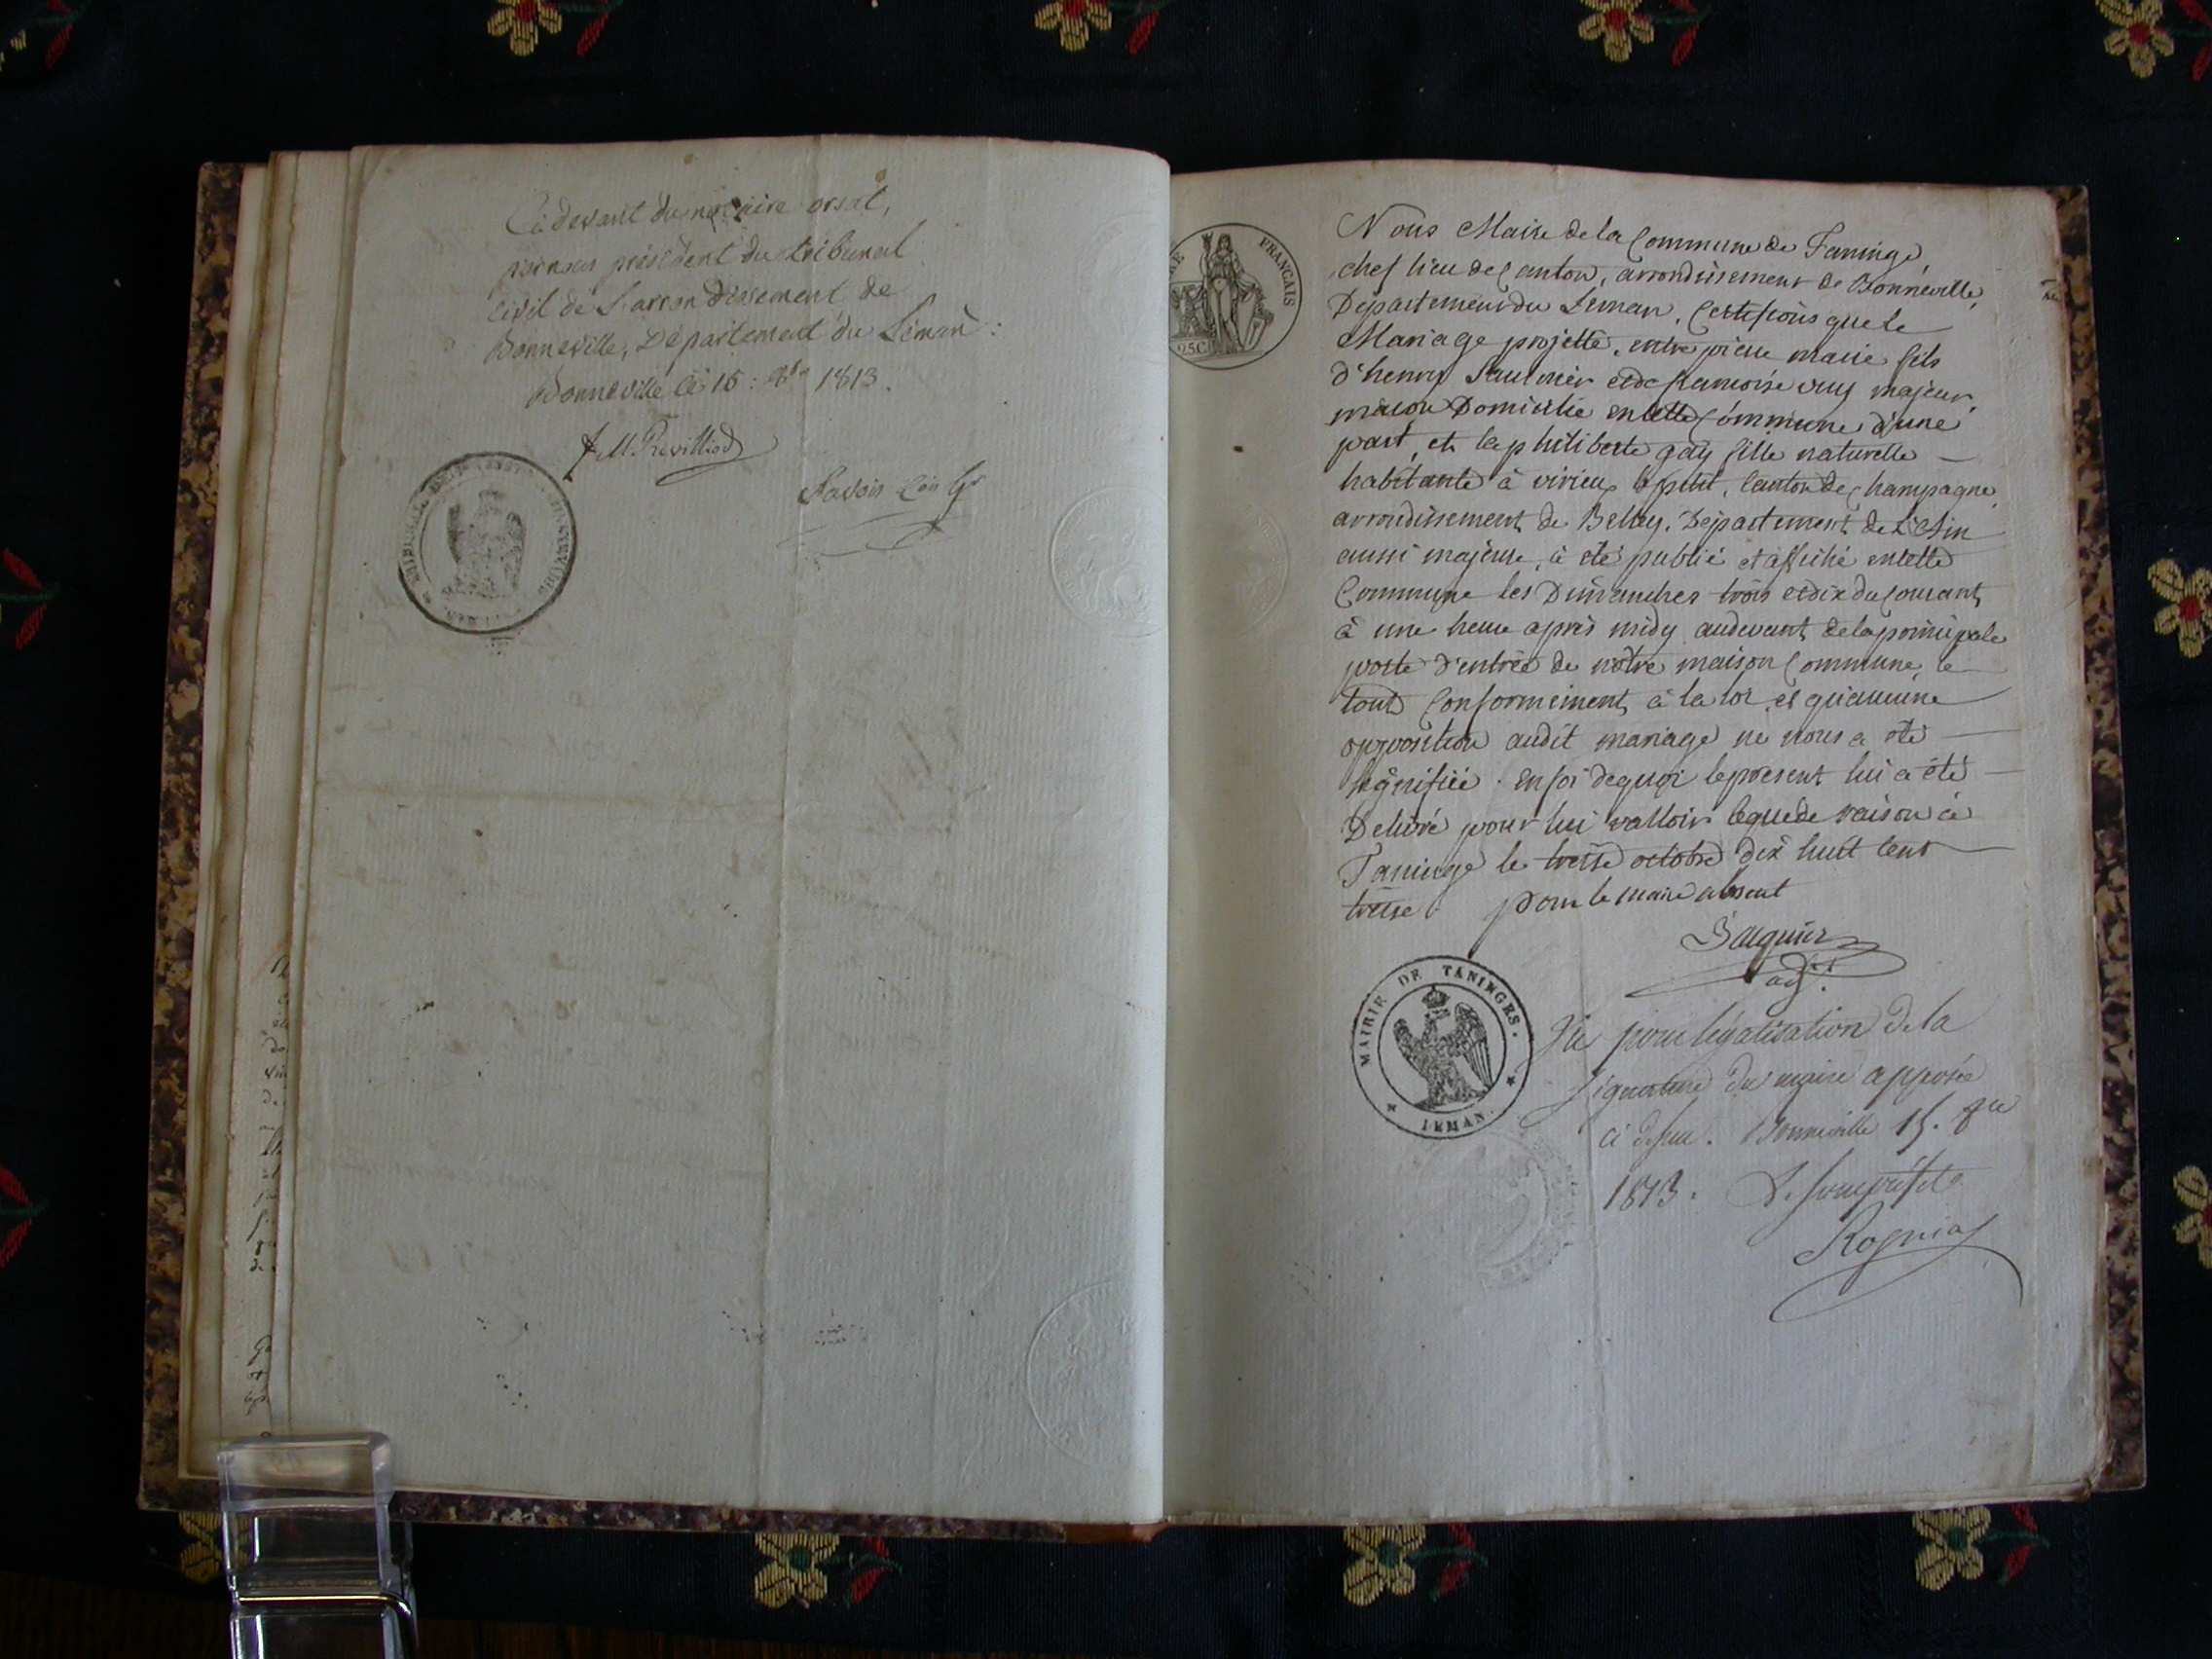 Ci devant du notaire orsat,
par nous président du tribunal
civil de l'arrondissement de
Bonneville, Département du Léman :
Bonneville le 15 : 8bre 1813.
Nous Maire de la Commune de Taninge
chef lieu de Canton, arrondissement de Bonneville,
Département du Leman, Certifions que le
Mariage projetté, entre pierre marie fils
d'henry Saulnier et de francoise vuy majeur,
macon Domicilié en cette Commune d'une
part, et la philiberte gay fille naturelle
habitante à virieu le petit, Canton de Champagne,
arrondissement de Belley. Département de L'Ain
aussi majeure, à eté publié et affiché en cette
Commune les Dimanches trois et dix du Courant,
à une heure après midy audevant de la principale
porte d'entrée de nôtre maison Commune, le
tout Conformement à la loi et qu'aucune
opposition audit mariage ne nous a été
signifiée. en foi de quoi le present lui a été
Delivré pour lui valloir ce que de raison à
Taninge le treise octobre dix huit cent
treise. pour le maire absent
adjt.
MAIRIE DE TANINGES.
LEMAN.
Vu pour légalisation de la
signature du maire apposée
ci dessus. Bonneville 15. 8bre
1813. Le souspréfet
Rogniat
FRANCAIS
25C